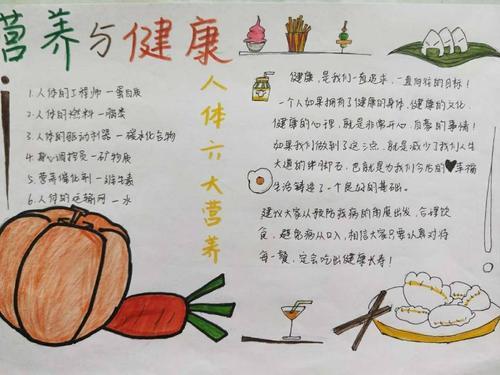 营养与健康
人体六大营养
1.人体的工程师—蛋白质
2.人体的燃料—脂类
3.人体的驱动利器—碳水化合物
4.身心调控员—矿物质
5.营养催化剂—维生素
6.人体的运输网—水
健康,是我们一直追求,一直向往的目标!
一个人如果拥有了健康的身体,健康的文化,
健康的心理,就是非常开心,启蒙的事情!
如果我们做到了这三点,就是减少了我们人生
大道的绊脚石,也就是为我们今后的幸福
生活铸造了一个良好的基础。
建议大家从预防疾病的角度出发,合理饮
食,避免病从口入,相信大家只要认真对待
每一餐,定会吃出健康长寿!